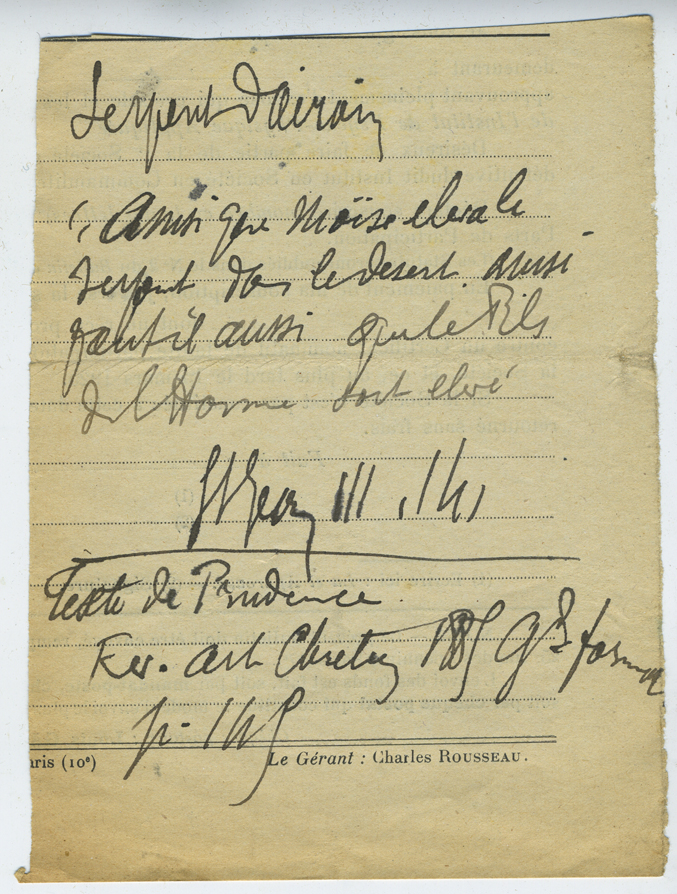 Serpent d'airain
"Ainsi que Moïse eleva le
serpent dans le desert. ainsi
faut il aussi que le Fils
de l'Homme soit elevé
St Jean III, 14,
Texte de Prudence.
Rev. Art Chretien 1885 Gd format
p. 145
aris (10e)
Le Gérant : Charles ROUSSEAU.